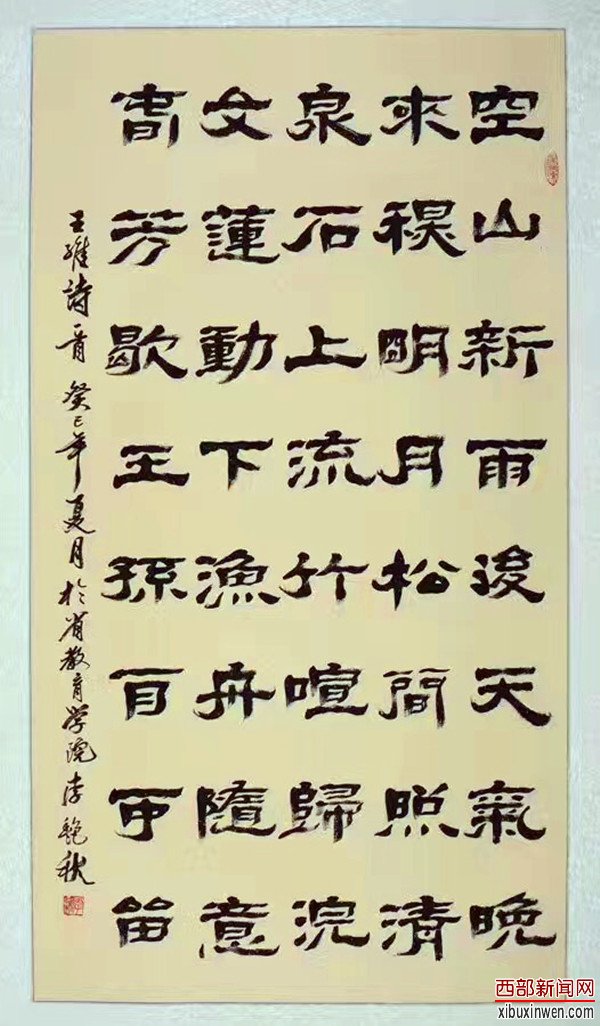 空山新雨後天氣晚
來秋明月松間照清
泉石上流竹喧歸浣
女蓮動下漁舟隨意
春芳歇王孫自可留
王維詩一首 癸巳年夏月於省教育学院李秋
西部新闻网
xibuxinwen.com